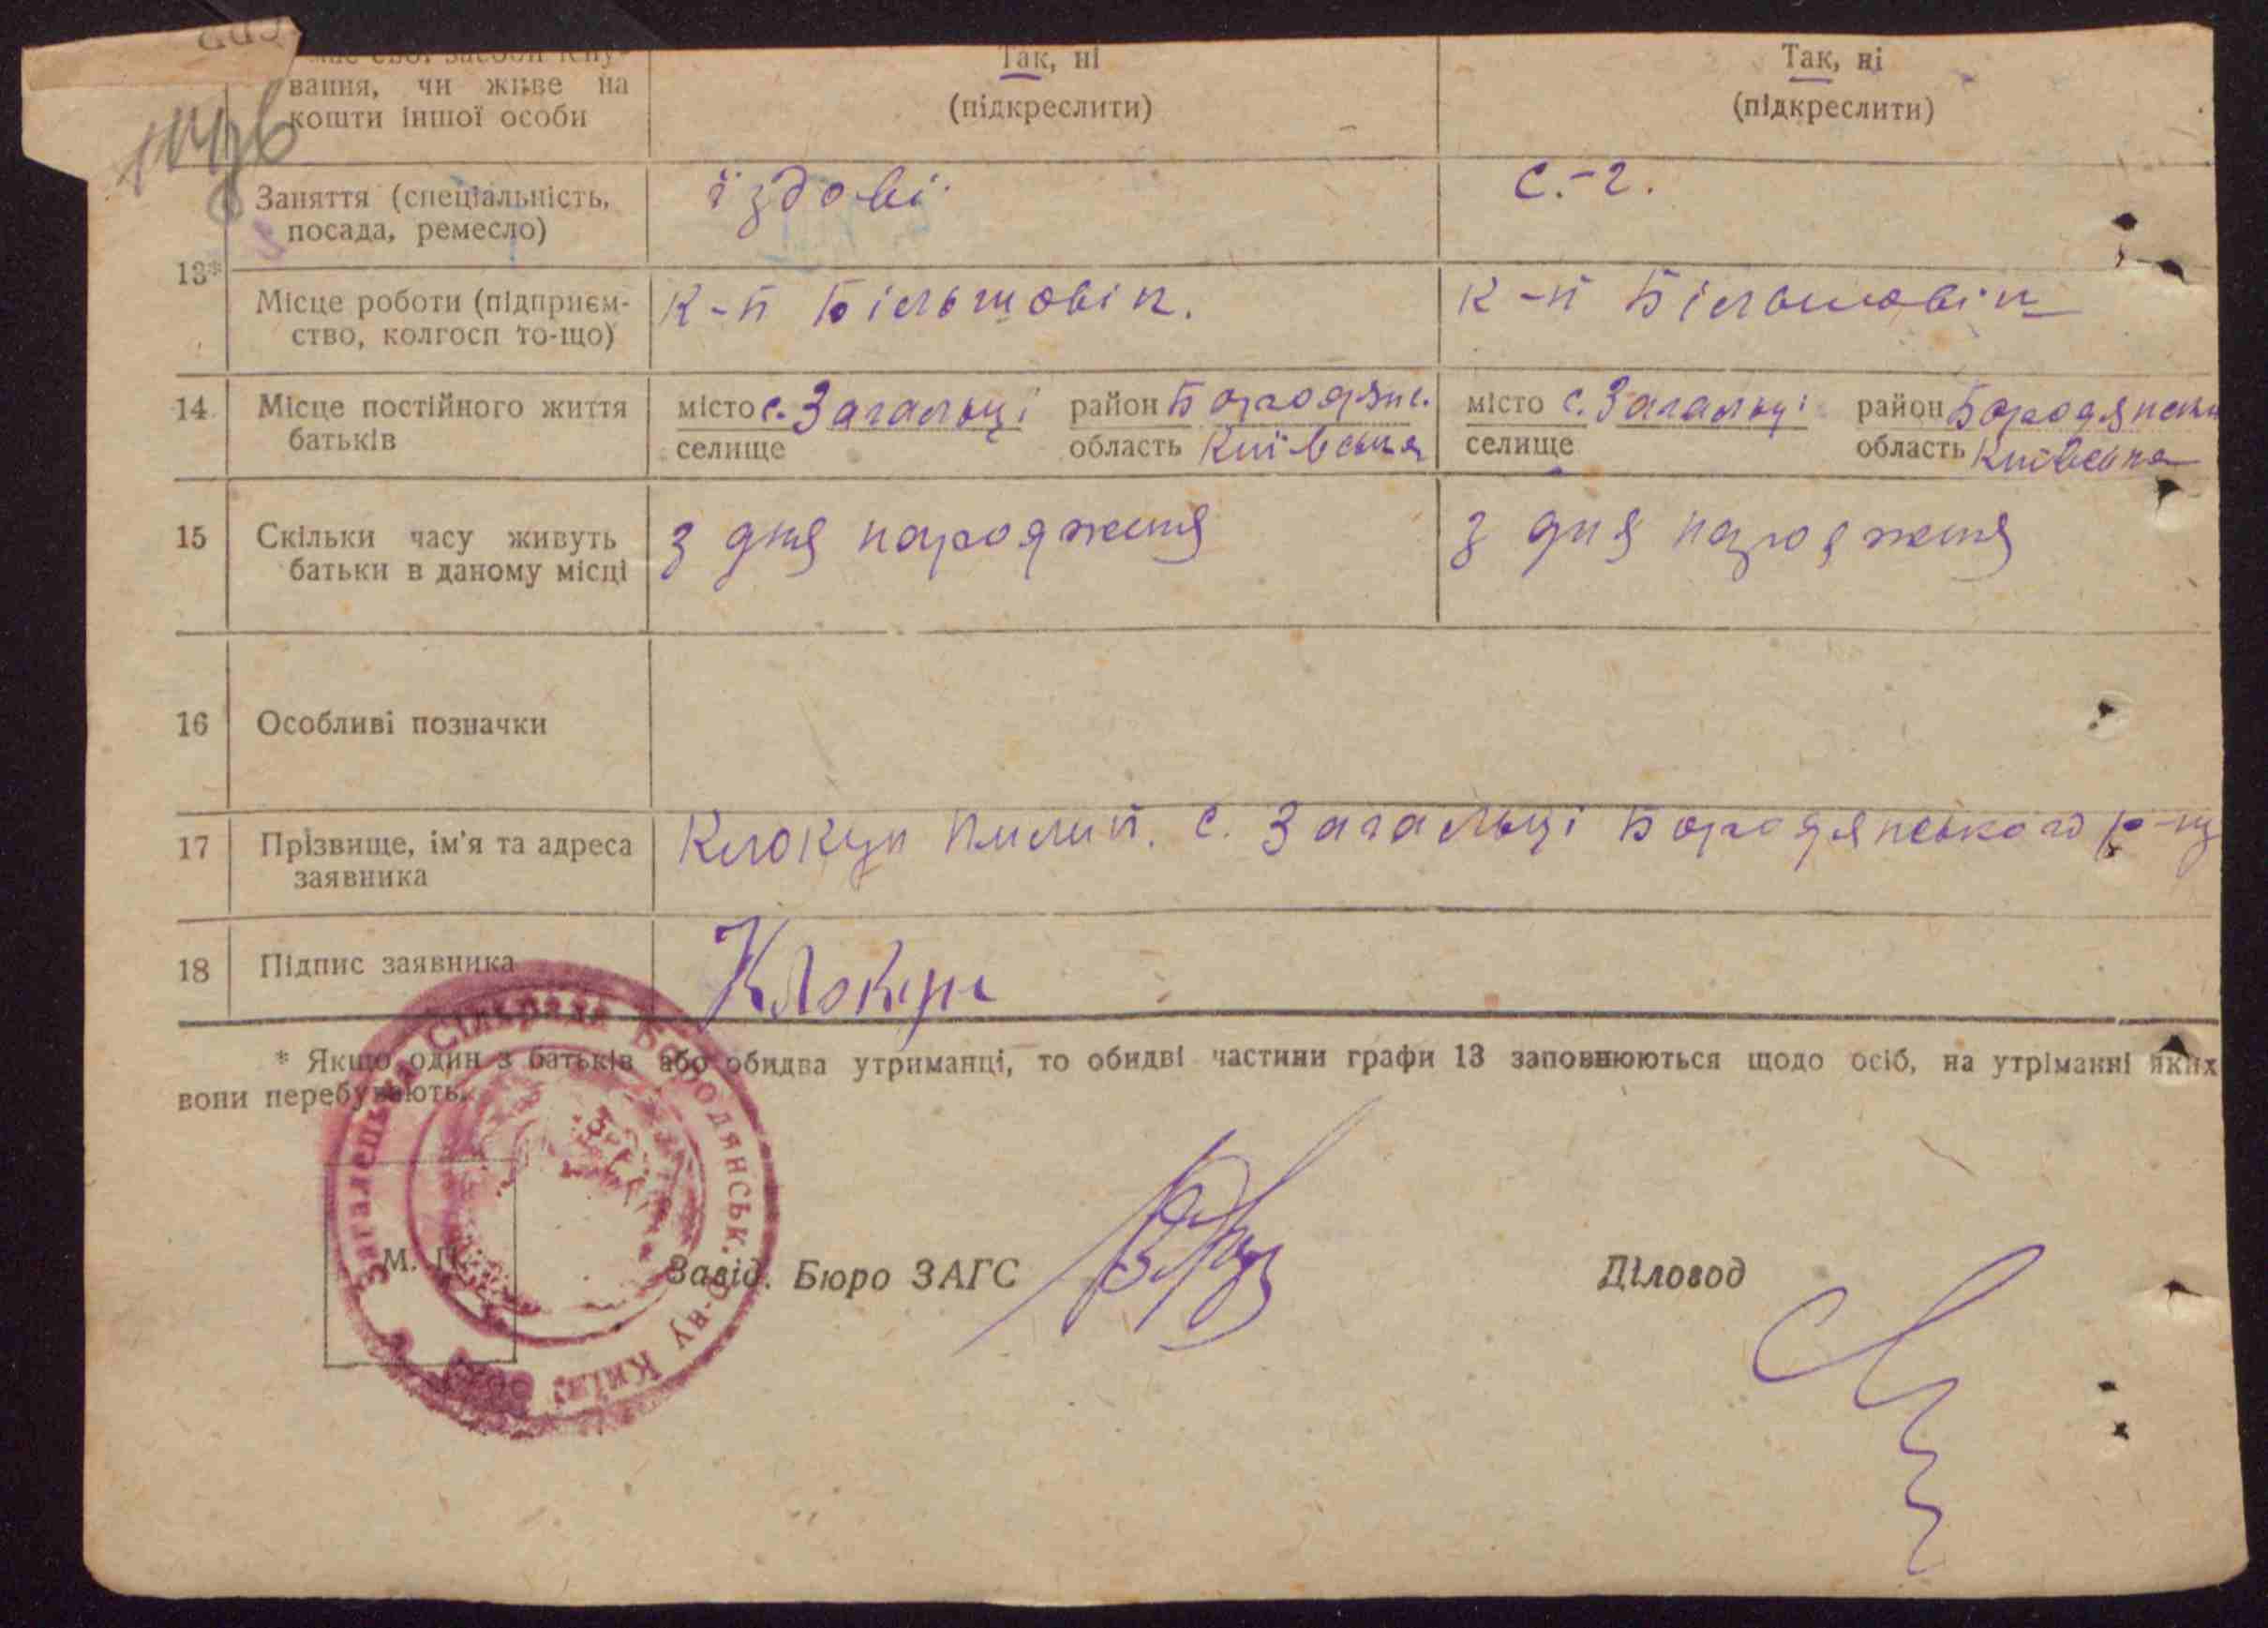 вання, чи живе на
кошти іншої особи
Так, ні
(підкреслити)
Так, ні
(підкреслити)
13*
Заняття (спеціальність,
посада, ремесло)
їздові
с.-г.
Місце роботи (підприєм-
ство, колгосп то-що)
к-п Більшовік.
к-п Більшовік
14
Місце постійного життя
батьків
місто с. Загальці район Бородянс.
селище область Київська
місто с. Загальці район Бородянськ
селище область Київська
15
Скільки часу живуть
батьки в даному місці
з дня народження
з дня народження
16
Особливі позначки
17
Прізвище, ім'я та адреса
заявника
Клокун Пилип. с. Загальці Бородянського р-ну
18
Підпис заявника
Клокун
* Якщо один з батьків або обидва утриманці, то обидві частини графи 13 заповнюються щодо осіб, на утріманні яких
вони перебувають.
Загалецька Сільрада Бородянськ. р-ну Київ.
М. П.
Завід. Бюро ЗАГС
Діловод